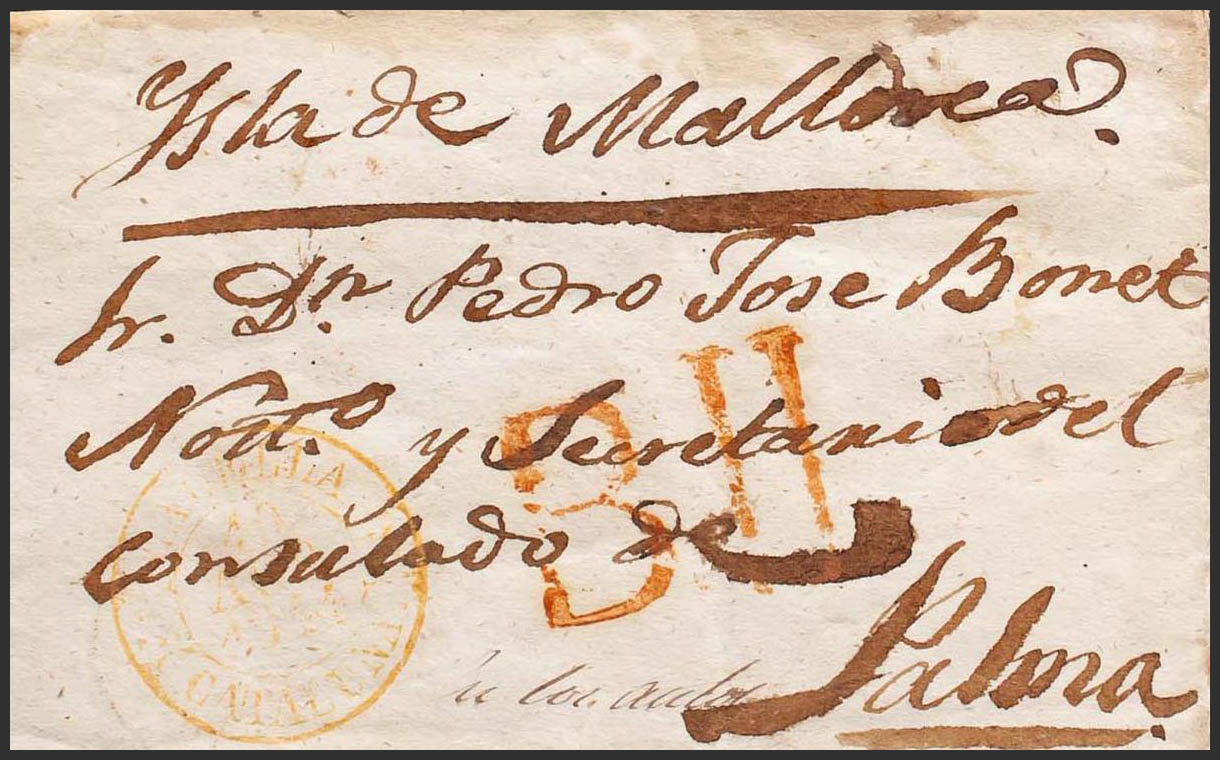 Ysla de Mallorca.
Sr. Dn. Pedro Jose Bonet
Not.o y Secretario del
consulado de
Palma.
B 11
CATALUÑA